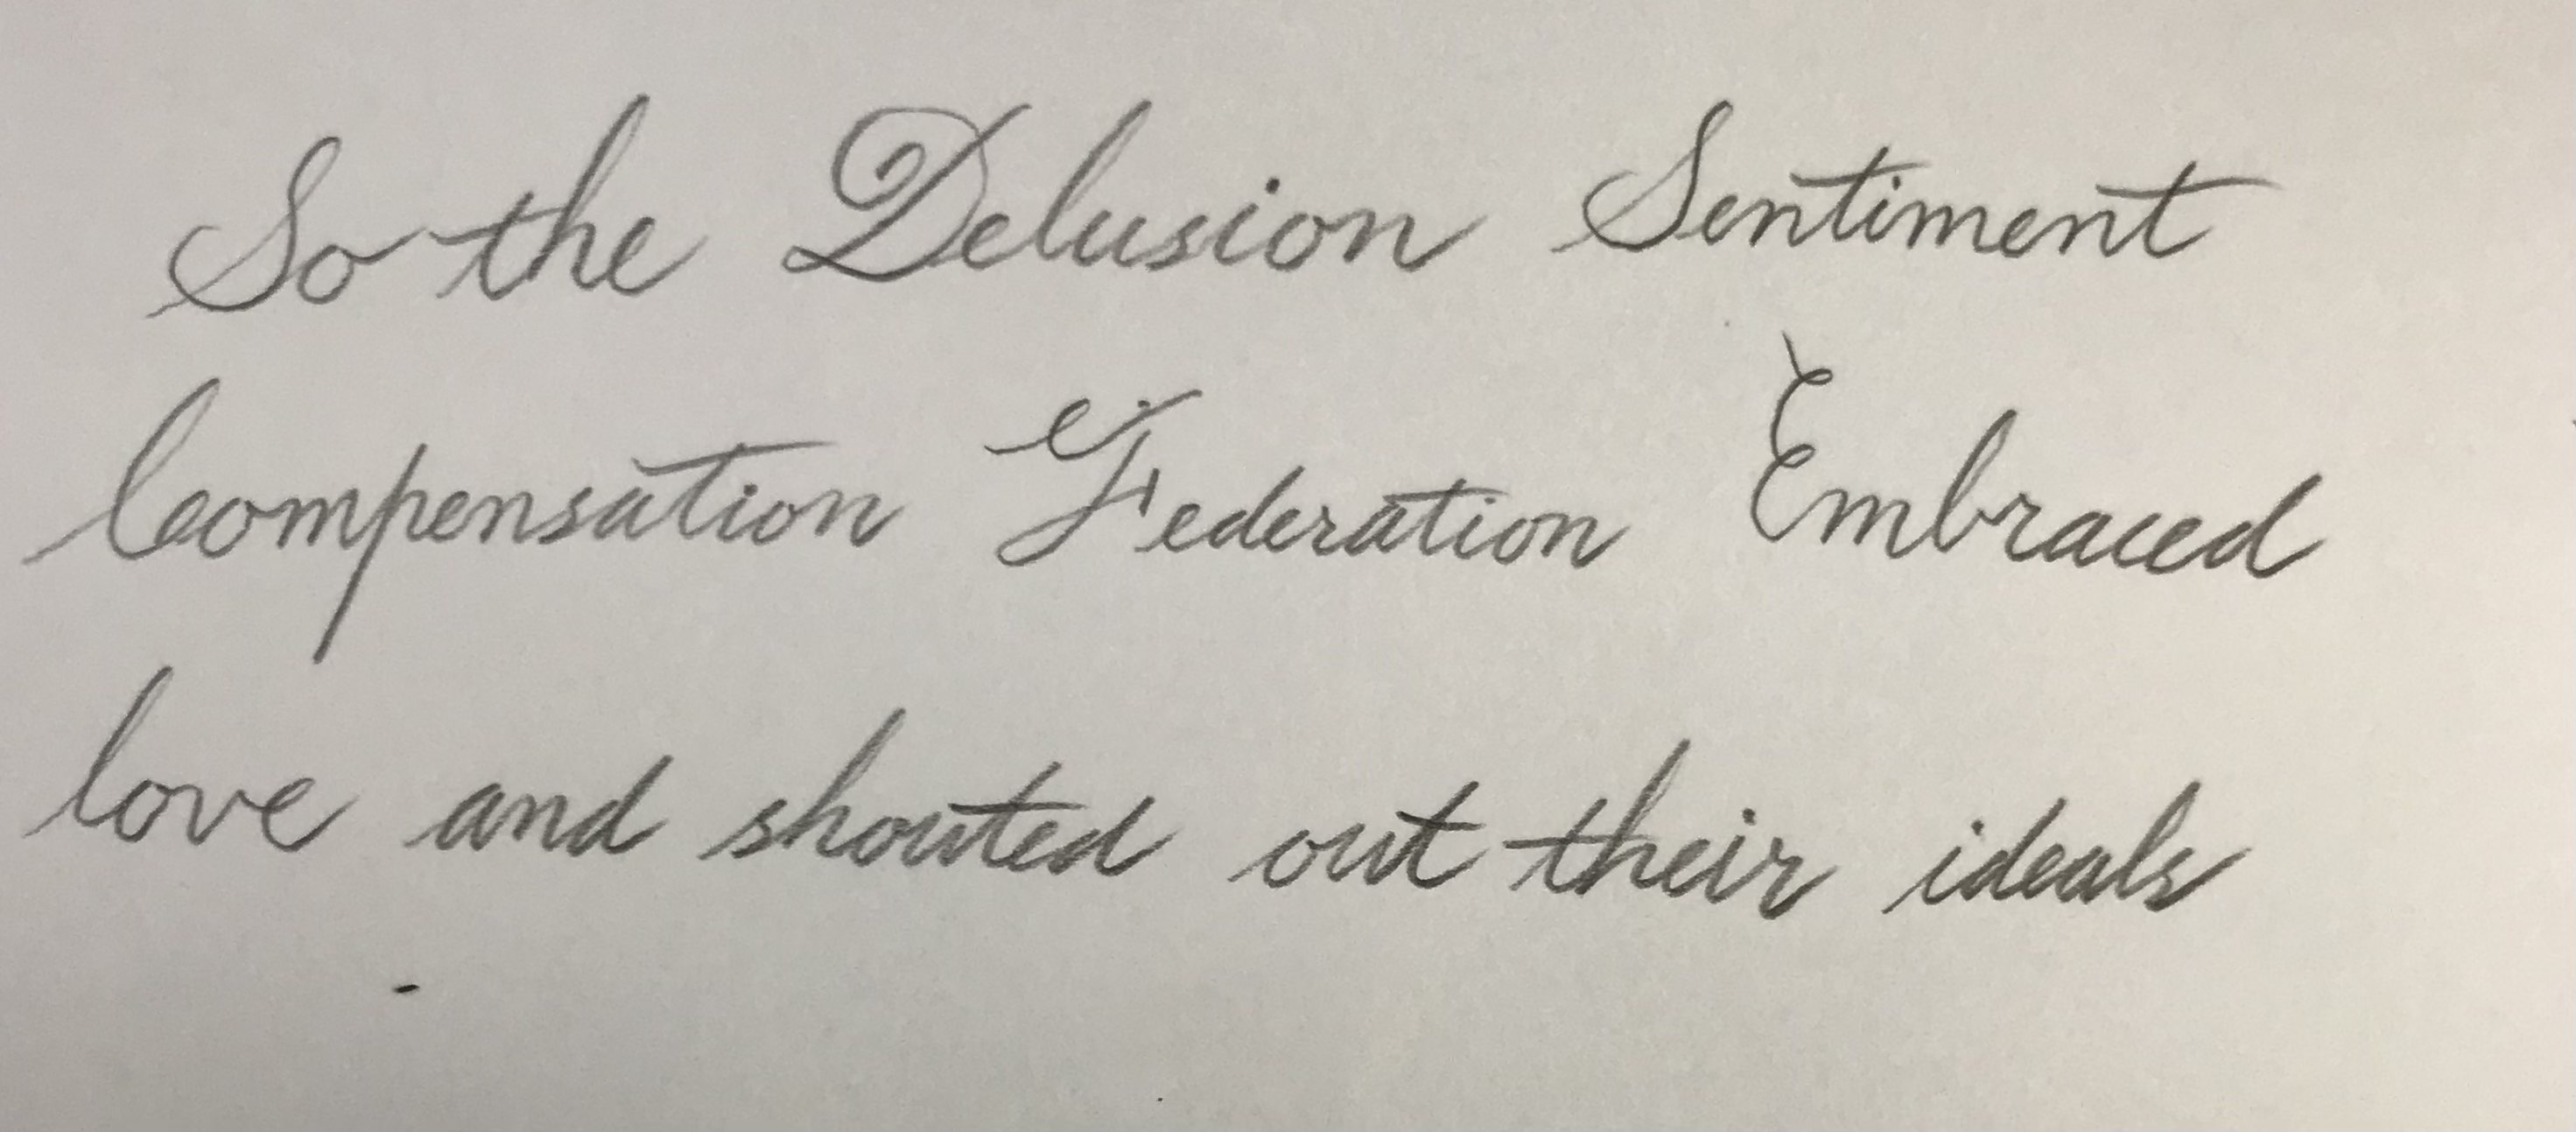 So the Delusion Sentiment
Compensation Federation Embraced
love and shouted out their ideals